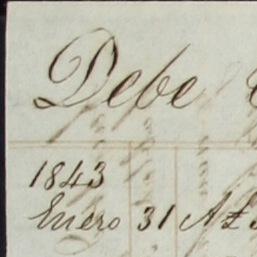 Debe
1843
Enero 31 A